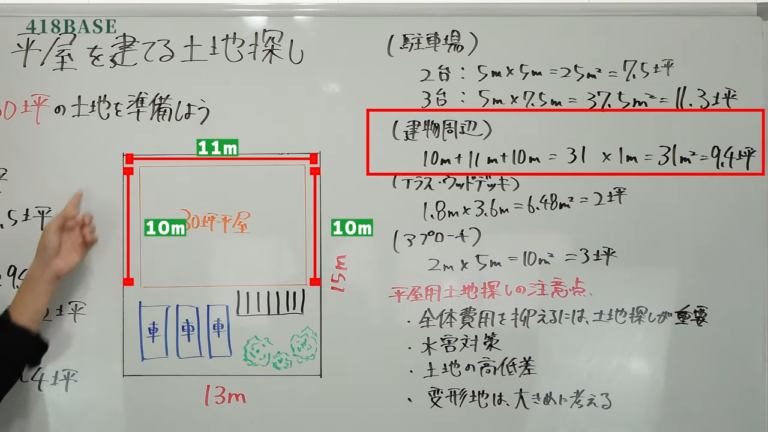 418BASE
平屋を建てる土地探し
0坪の土地を準備しよう
.5坪
2坪
4坪
11m
10m
30坪平屋
10m
15m
車 車 車
13m
(駐車場)
2台: 5m×5m=25m²=7.5坪
3台: 5m×7.5m=37.5m²=11.3坪
(建物周辺)
10m+11m+10m=31 ×1m=31m²=9.4坪
(テラス・ウッドデッキ)
1.8m×3.6m=6.48m²=2坪
(アプローチ)
2m×5m=10m²=3坪
平屋用土地探しの注意点.
・全体費用を抑えるには、土地探しが重要
・水害対策
・土地の高低差
・変形地は、大きめに考える